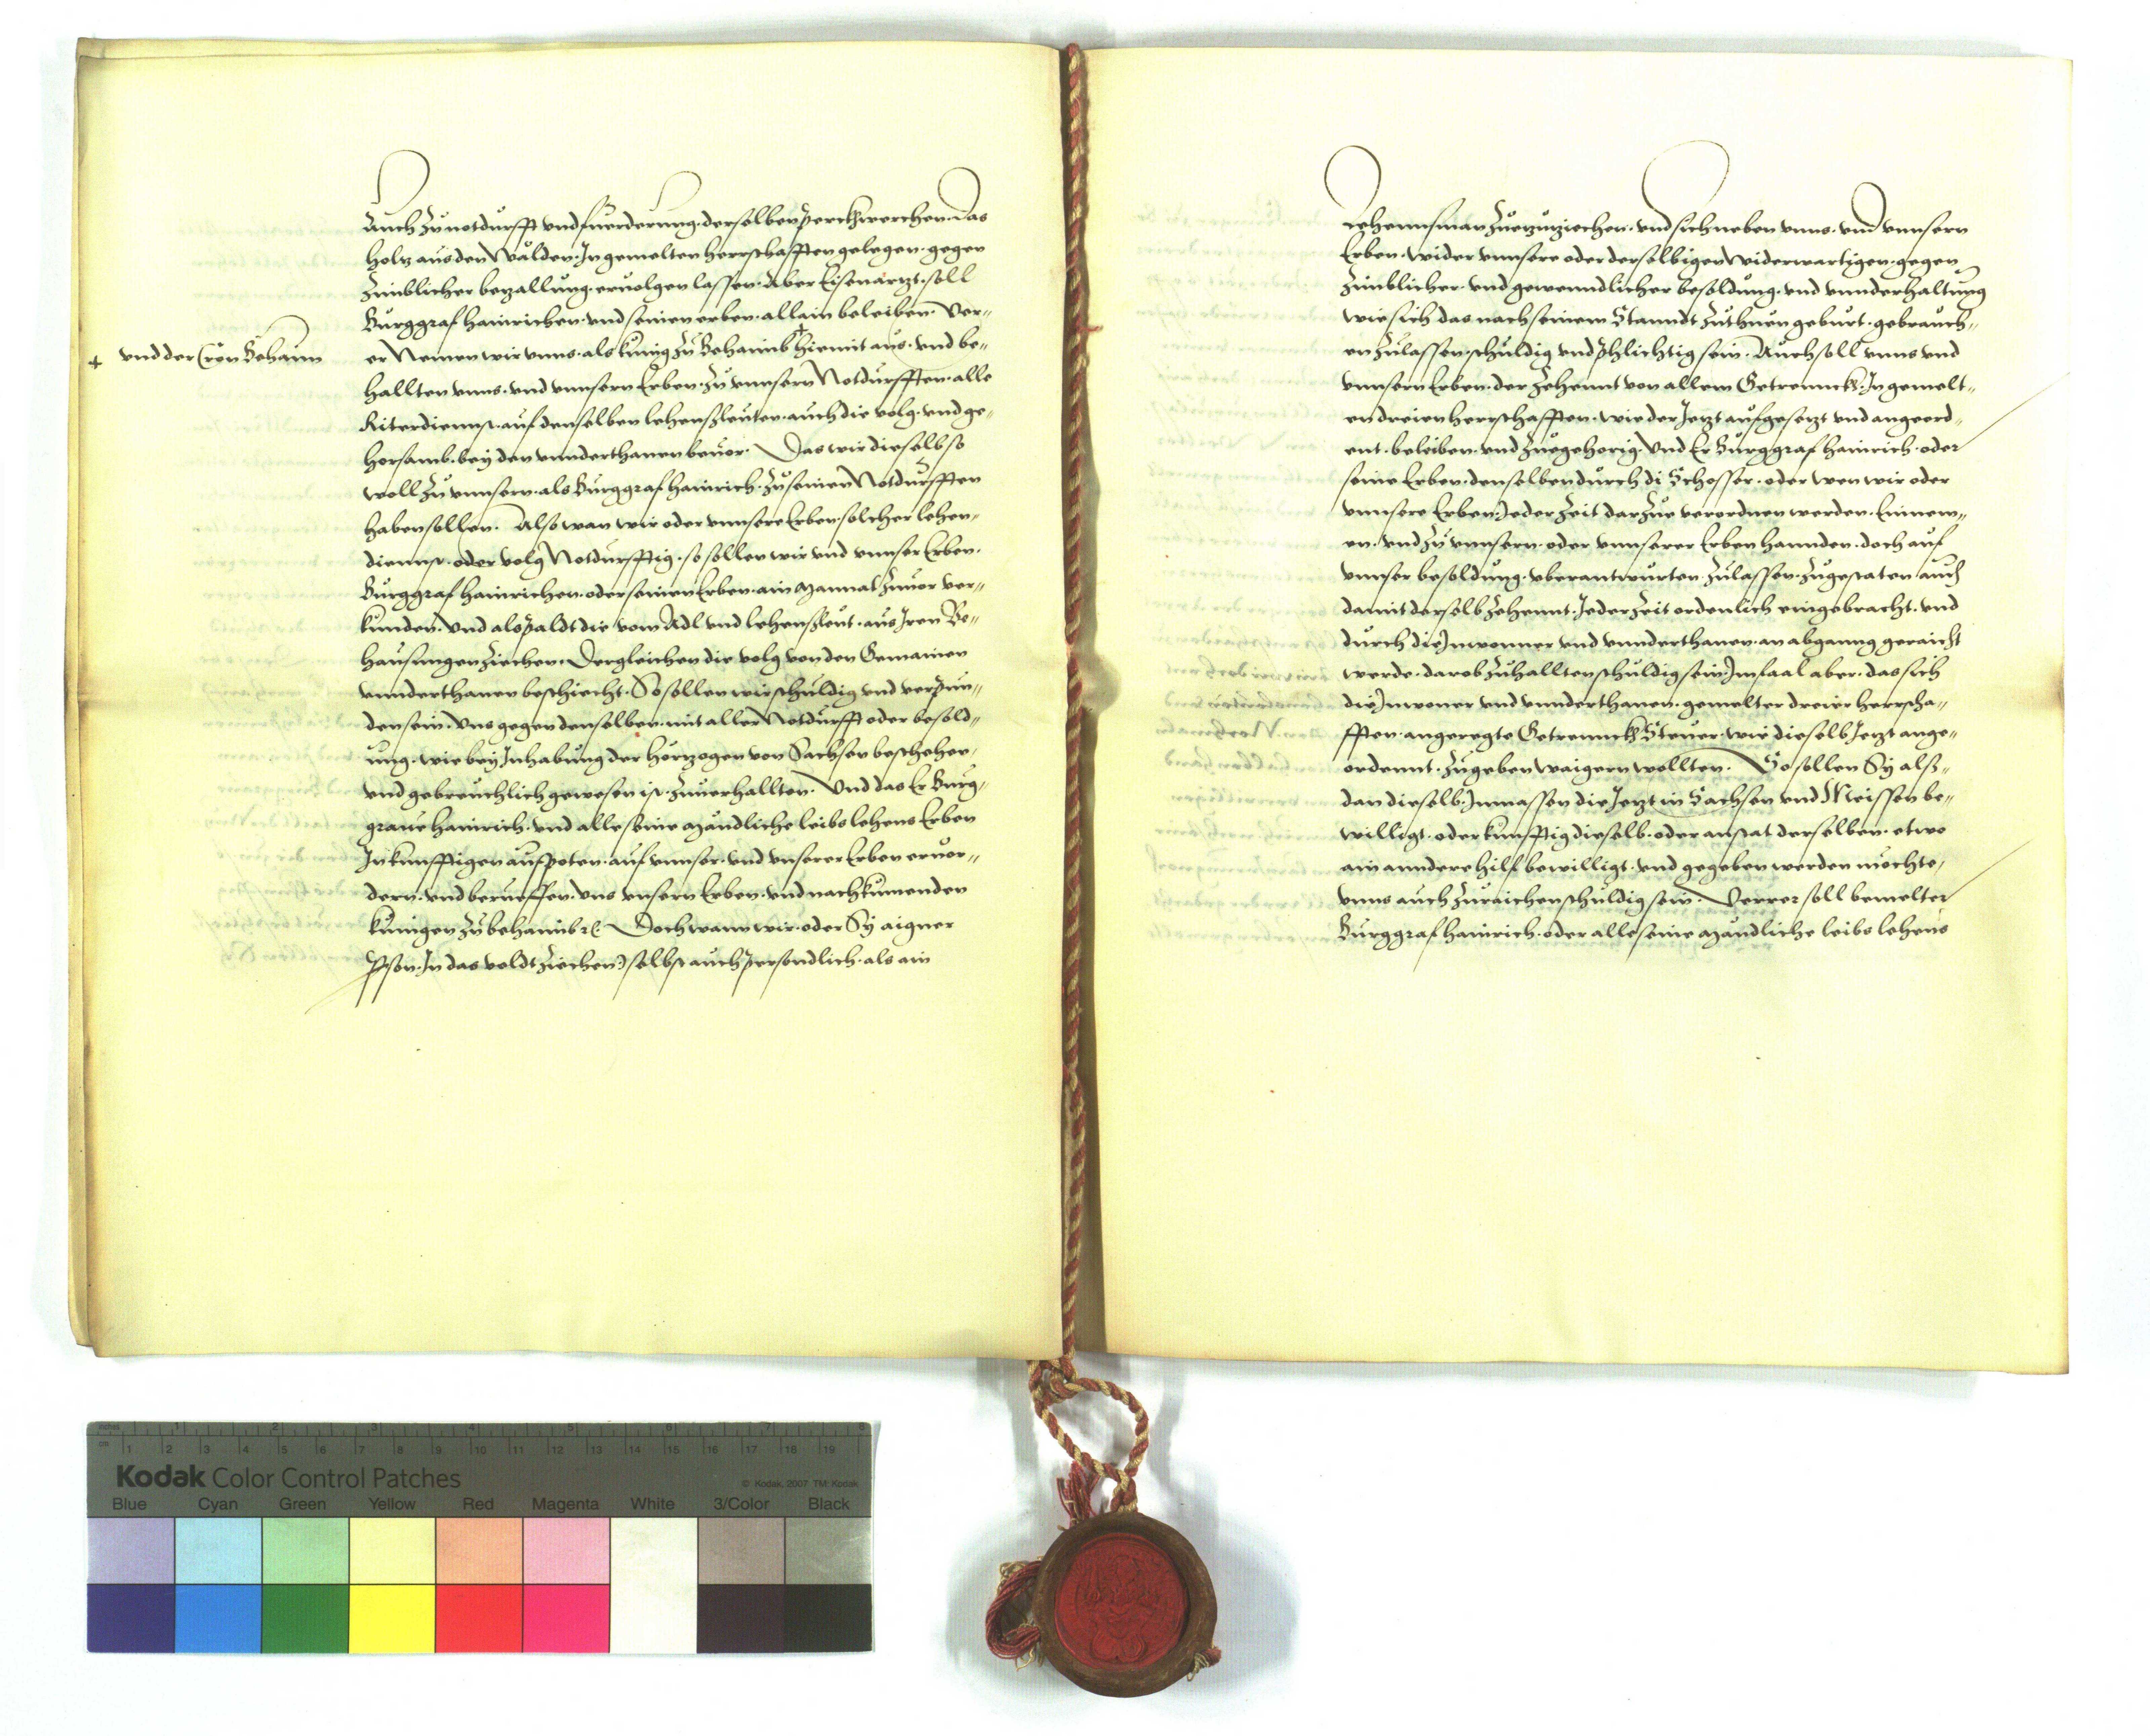 Auch zu notdurfft vnd fuerderung. derselben perckhwerchen. das
holz aus den Wälden. In gemelten herrschafften gelegen. gegen
zimblicher bezallung. eruolgen lassen. Aber Eisenarzt. soll
Burggraf hainrichen. vnd seinen erben. allain beleiben. Ver„
+ vnd der Cron Behaim
er Nemen wir vnns. als kunig zu Behaimb + hiemit aus. vnd be„
hallten vnns. vnd vnnsern Erben. zu vnnsern Notdurfften. alle
Riterdiennst. auf denselben lehenßleuten. auch die volg. vnd ge„
horsamb. bey den vnnderthanen beuor. Das wir dieselb so
woll zu vnnsern. als Burggraf hainrich. zu seinen Notdurfften
haben sollen. Also wan wir oder vnnsere Erben. solcher lehen„
diennst. oder volg Notdurfftig. so sollen wir vnd vnnser Erben.
Burggraf hainrichen. oder seinen Erben. ain Mannat zuuor ver„
kunden. Vnd als paldt die vom Adl vnd lehenßleut. aus Iren Be„
hausungen ziechen. Dergleichen die volg von den Gemainen
vnnderthanen beschiecht. So sollen wir schuldig vnd verpun„
den sein. Vns gegen denselben. mit aller Notdurfft oder besold„
ung. wie bey Inhabung der Hörzogen von Sachsen beschehen,
vnd gebreuchlich gewesen ist. zuuerhallten. Vnd das Er Burg,
graue hainrich. vnd alle seine Mändliche leibs lehens Erben
In kunfftigen aufpoten. auf vnnser. vnd vnserer Erben ervor„
dern. vnd berueffen. Vns vnsern Erben. vnd nachkumenden
kunigen zu behaimb etc. Doch wann wir. oder Sy aigner
Person. In das veldt ziechen) selbst auch persendlich. als ain
Lehennsman zuerzuziechen. vnd sich neben vnns. vnd vnnsern
Erben. wider vnnsere oder derselbigen widerwartigen. gegen
zimblicher. vnd gewenndlicher besoldung. vnd vnnderhaltung
wie sich das nach seinem Stanndt zuthuen geburt. gebrauch„
en zulassen. schuldig vnd phlichtig sein. Auch soll vnns vnd
vnnsern Erben. der zehennt von allem Getrennckh. In gemelt„
en dreien herrschafften. wie der Jetzt aufgesetzt vnd angeord„
ent. beleiben. vnd zuegehorig. Vnd Er Burggraf hainrich. oder
seine Erben. denselben durch di Schosser. oder wen wir oder
vnnsere Erben Jeder Zeit darzue verordnen werden. Einnem„
en. vnd zu vnnsern. oder vnnserer Erben hannden. doch auf
vnnser besoldung. vberantwurten. zulassen. zugestaten auch
damit derselb zehennt. Jederzeit ordenlich eingebracht. vnd
durch die Inwonner vnd vnnderthanen. an abganng geraicht
werde. darob zuhallten schuldig sein. Im faal aber. das sich
die Inwoner vnd vnnderthanen. gemelter dreier herrscha„
fften. angeregte Getrennckh Steuer. wie dieselb Jetzt ange„
ordennt. zugeben waigern wollten. So sollen Sy alß„
dan dieselb. Inmassen die Jetzt in Sachsen vnd Meissen be„
willigt. oder kunfftig dieselb. oder anstat derselben. etwo
ain anndere hilf bewilligt. vnd gegeben werden möchte,
vnns auch zuraichen schuldig sein. Verrer soll bemelter
Burggraf hainrich. oder alle seine Mändliche leibs lehens
inches
cm
1 2 3 4 5 6 7 8 9 10 11 12 13 14 15 16 17 18 19
Kodak Color Control Patches
© Kodak, 2007 TM: Kodak
Blue Cyan Green Yellow Red Magenta White 3/Color Black